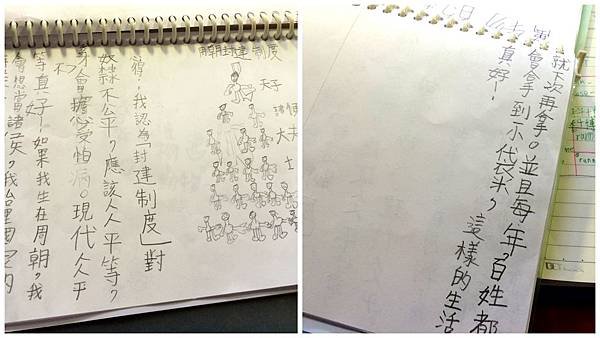 封建制度
天子
大夫
士
我認為「封建制度」對
奴隸不公平,應該人人平等,
才不會擔心受怕。現代人人平
等真好!如果我生在周朝,我
會想當諸侯,我治理
就下次再拿。並且每年,百姓都
會拿到小袋米,這樣的生活
真好!